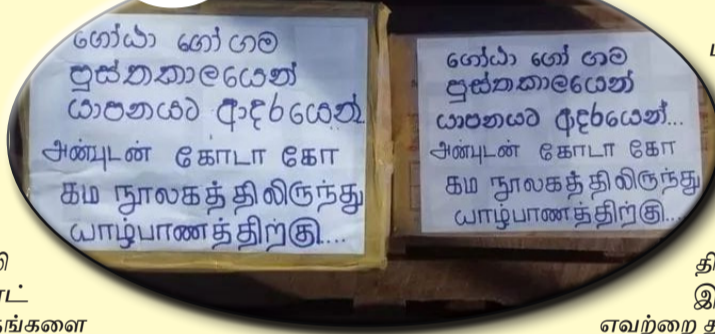 ගෝඨා ගෝ ගම
පුස්තකාලයෙන්
යාපනයට ආදරයෙන්
அன்புடன் கோடா கோ
கம நூலகத்திலிருந்து
யாழ்பாணத்திற்கு...
ගෝඨා ගෝ ගම
පුස්තකාලයෙන්
යාපනයට ආදරයෙන්...
அன்புடன் கோடா கோ
கம நூலகத்திலிருந்து
யாழ்பாணத்திற்கு...
எவற்றை